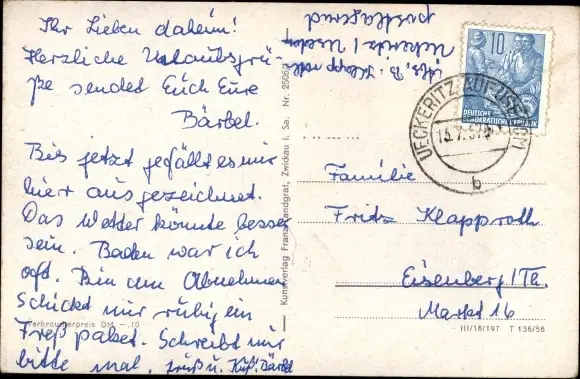 Ihr Lieben daheim!
Herzliche Urlaubsgrü-
ße sendet Euch Eure
Bärbel.
Bis jetzt gefällt es mir
hier ausgezeichnet.
Das Wetter könnte besser
sein. Baden war ich
oft. Bin am Abnehmen
Schickt mir ruhig ein
Freßpaket. Schreibt mir
bitte mal. Gruß u. Kuß! Bärbel
Verbraucherpreis DM -.10
Kunstverlag Franz Landgraf, Zwickau i. Sa. Nr. 2506/
Abs. B. Klapproth
Ückeritz / Usedom
postlagernd
10
DEUTSCHE
DEMOKRATISCHE REPUBLIK
UECKERITZ AUF USEDOM
b
Familie
Fritz Klapproth
Eisenberg/Th.
Markt 16
III/18/197 T 136/56